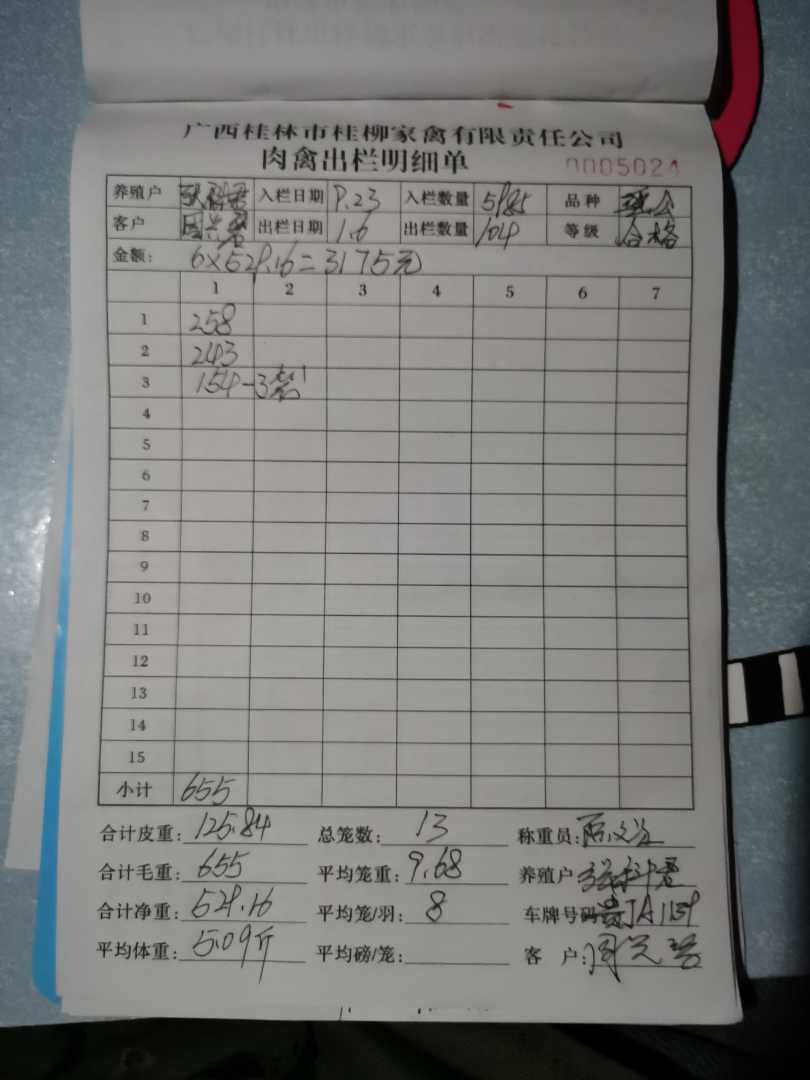 广西桂林市桂柳家禽有限责任公司
肉禽出栏明细单 0005024
养殖户 入栏日期 9.23 入栏数量 5985 品种
客户 出栏日期 1.6 出栏数量 104 等级 合格
金额: 6×529.16=3175元
1 2 3 4 5 6 7
1 258
2 243
3 154-3笼
4
5
6
7
8
9
10
11
12
13
14
15
小计 655
合计皮重: 125.84 总笼数: 13 称重员:
合计毛重: 655 平均笼重: 9.68 养殖户
合计净重: 529.16 平均笼/羽: 8 车牌号码
平均体重: 5.09斤 平均磅/笼: 客 户: